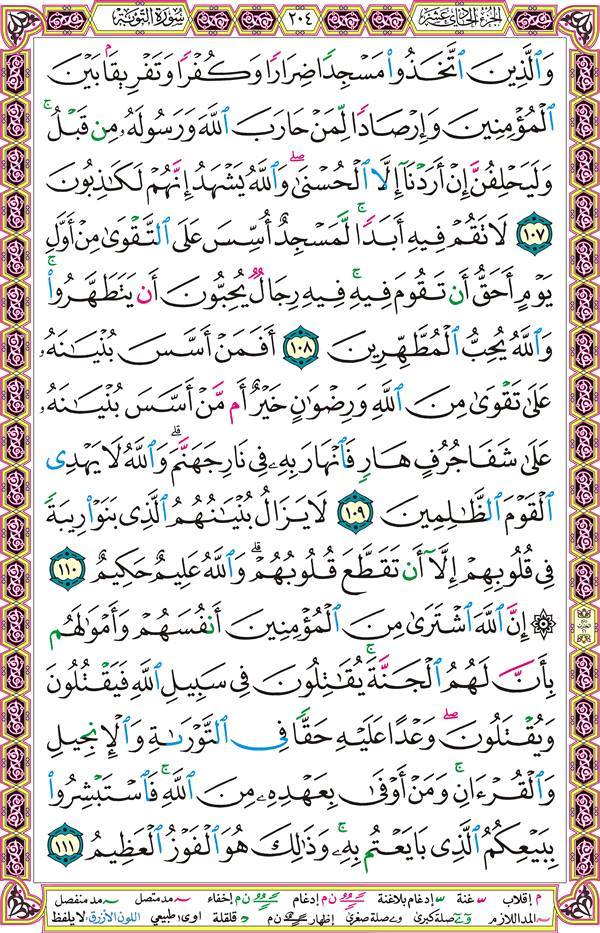 الجزء الحادي عشر
٢٠٤
سورة التوبة
وَٱلَّذِينَ ٱتَّخَذُوا۟ مَسْجِدًا ضِرَارًا وَكُفْرًا وَتَفْرِيقًۢا بَيْنَ
ٱلْمُؤْمِنِينَ وَإِرْصَادًا لِّمَنْ حَارَبَ ٱللَّهَ وَرَسُولَهُۥ مِن قَبْلُ ۚ
وَلَيَحْلِفُنَّ إِنْ أَرَدْنَآ إِلَّا ٱلْحُسْنَىٰ ۖ وَٱللَّهُ يَشْهَدُ إِنَّهُمْ لَكَـٰذِبُونَ
١٠٧ لَا تَقُمْ فِيهِ أَبَدًا ۚ لَّمَسْجِدٌ أُسِّسَ عَلَى ٱلتَّقْوَىٰ مِنْ أَوَّلِ
يَوْمٍ أَحَقُّ أَن تَقُومَ فِيهِ ۚ فِيهِ رِجَالٌ يُحِبُّونَ أَن يَتَطَهَّرُوا۟ ۚ
وَٱللَّهُ يُحِبُّ ٱلْمُطَّهِّرِينَ ١٠٨ أَفَمَنْ أَسَّسَ بُنْيَـٰنَهُۥ
عَلَىٰ تَقْوَىٰ مِنَ ٱللَّهِ وَرِضْوَٰنٍ خَيْرٌ أَم مَّنْ أَسَّسَ بُنْيَـٰنَهُۥ
عَلَىٰ شَفَا جُرُفٍ هَارٍ فَٱنْهَارَ بِهِۦ فِى نَارِ جَهَنَّمَ ۗ وَٱللَّهُ لَا يَهْدِى
ٱلْقَوْمَ ٱلظَّـٰلِمِينَ ١٠٩ لَا يَزَالُ بُنْيَـٰنُهُمُ ٱلَّذِى بَنَوْا۟ رِيبَةً
فِى قُلُوبِهِمْ إِلَّآ أَن تَقَطَّعَ قُلُوبُهُمْ ۗ وَٱللَّهُ عَلِيمٌ حَكِيمٌ ١١٠
۞ إِنَّ ٱللَّهَ ٱشْتَرَىٰ مِنَ ٱلْمُؤْمِنِينَ أَنفُسَهُمْ وَأَمْوَٰلَهُم
بِأَنَّ لَهُمُ ٱلْجَنَّةَ ۚ يُقَـٰتِلُونَ فِى سَبِيلِ ٱللَّهِ فَيَقْتُلُونَ
وَيُقْتَلُونَ ۖ وَعْدًا عَلَيْهِ حَقًّا فِى ٱلتَّوْرَىٰةِ وَٱلْإِنجِيلِ
وَٱلْقُرْءَانِ ۚ وَمَنْ أَوْفَىٰ بِعَهْدِهِۦ مِنَ ٱللَّهِ ۚ فَٱسْتَبْشِرُوا۟
بِبَيْعِكُمُ ٱلَّذِى بَايَعْتُم بِهِۦ ۚ وَذَٰلِكَ هُوَ ٱلْفَوْزُ ٱلْعَظِيمُ ١١١
م إقلاب غنة إدغام بلاغنة ن م إدغام ن م إخفاء مد متصل مد منفصل
المد اللازم صلة كبرى صلة صغرى إظهار ن م قلقلة اوى طبيعي اللون الأزرق لا يلفظ